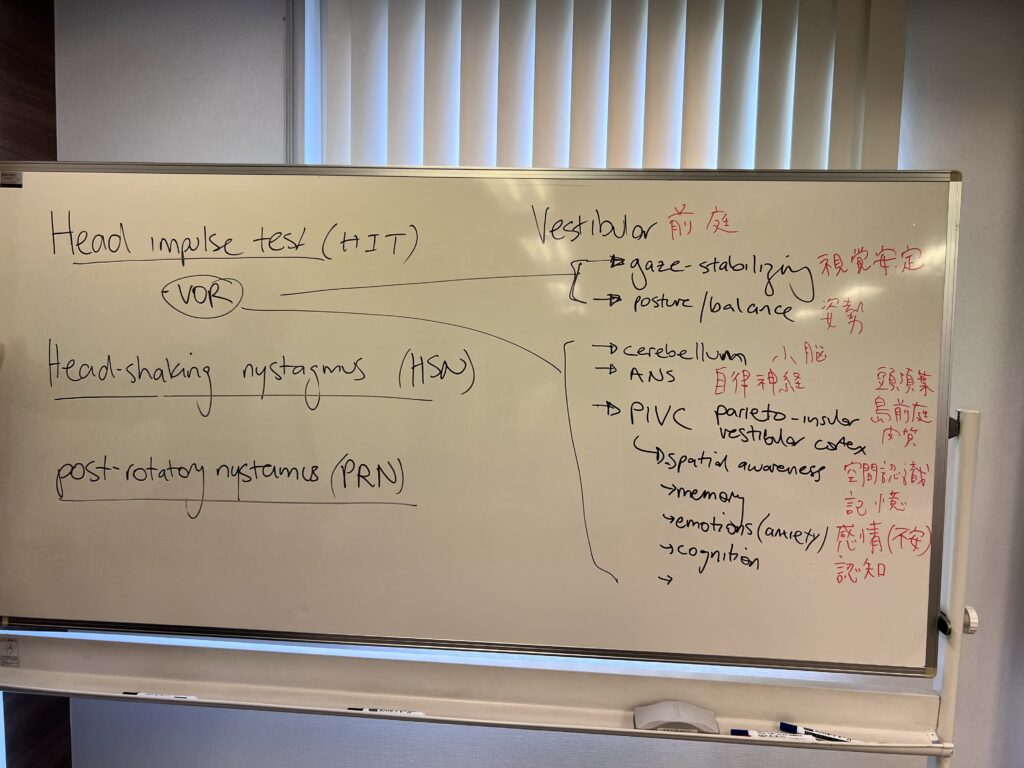 Head impulse test (HIT)
VOR
Head-shaking nystagmus (HSN)
post-rotatory nystamus (PRN)
Vestibular 前庭
gaze-stabilizing 視覚安定
posture/balance 姿勢
cerebellum 小脳
ANS 自律神経
PIVC parieto-insular
vestibular cortex
島前庭
皮質
spatial awareness 空間認識
memory 記憶
emotions (anxiety) 感情(不安)
cognition 認知